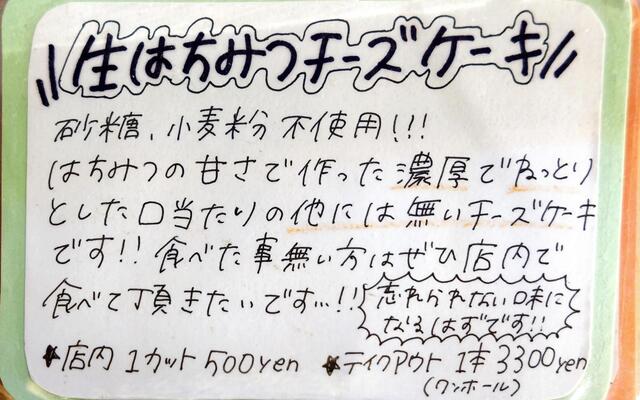 生はちみつチーズケーキ
砂糖、小麦粉 不使用!!!
はちみつの甘さで作った濃厚でねっとり
とした口当たりの他には無いチーズケーキ
です!! 食べた事無い方はぜひ店内で
食べて頂きたいです…!!
忘れられない味に
なるはずです!!
★店内 1カット 500yen ★テイクアウト 1本 3300yen
(ワンホール)